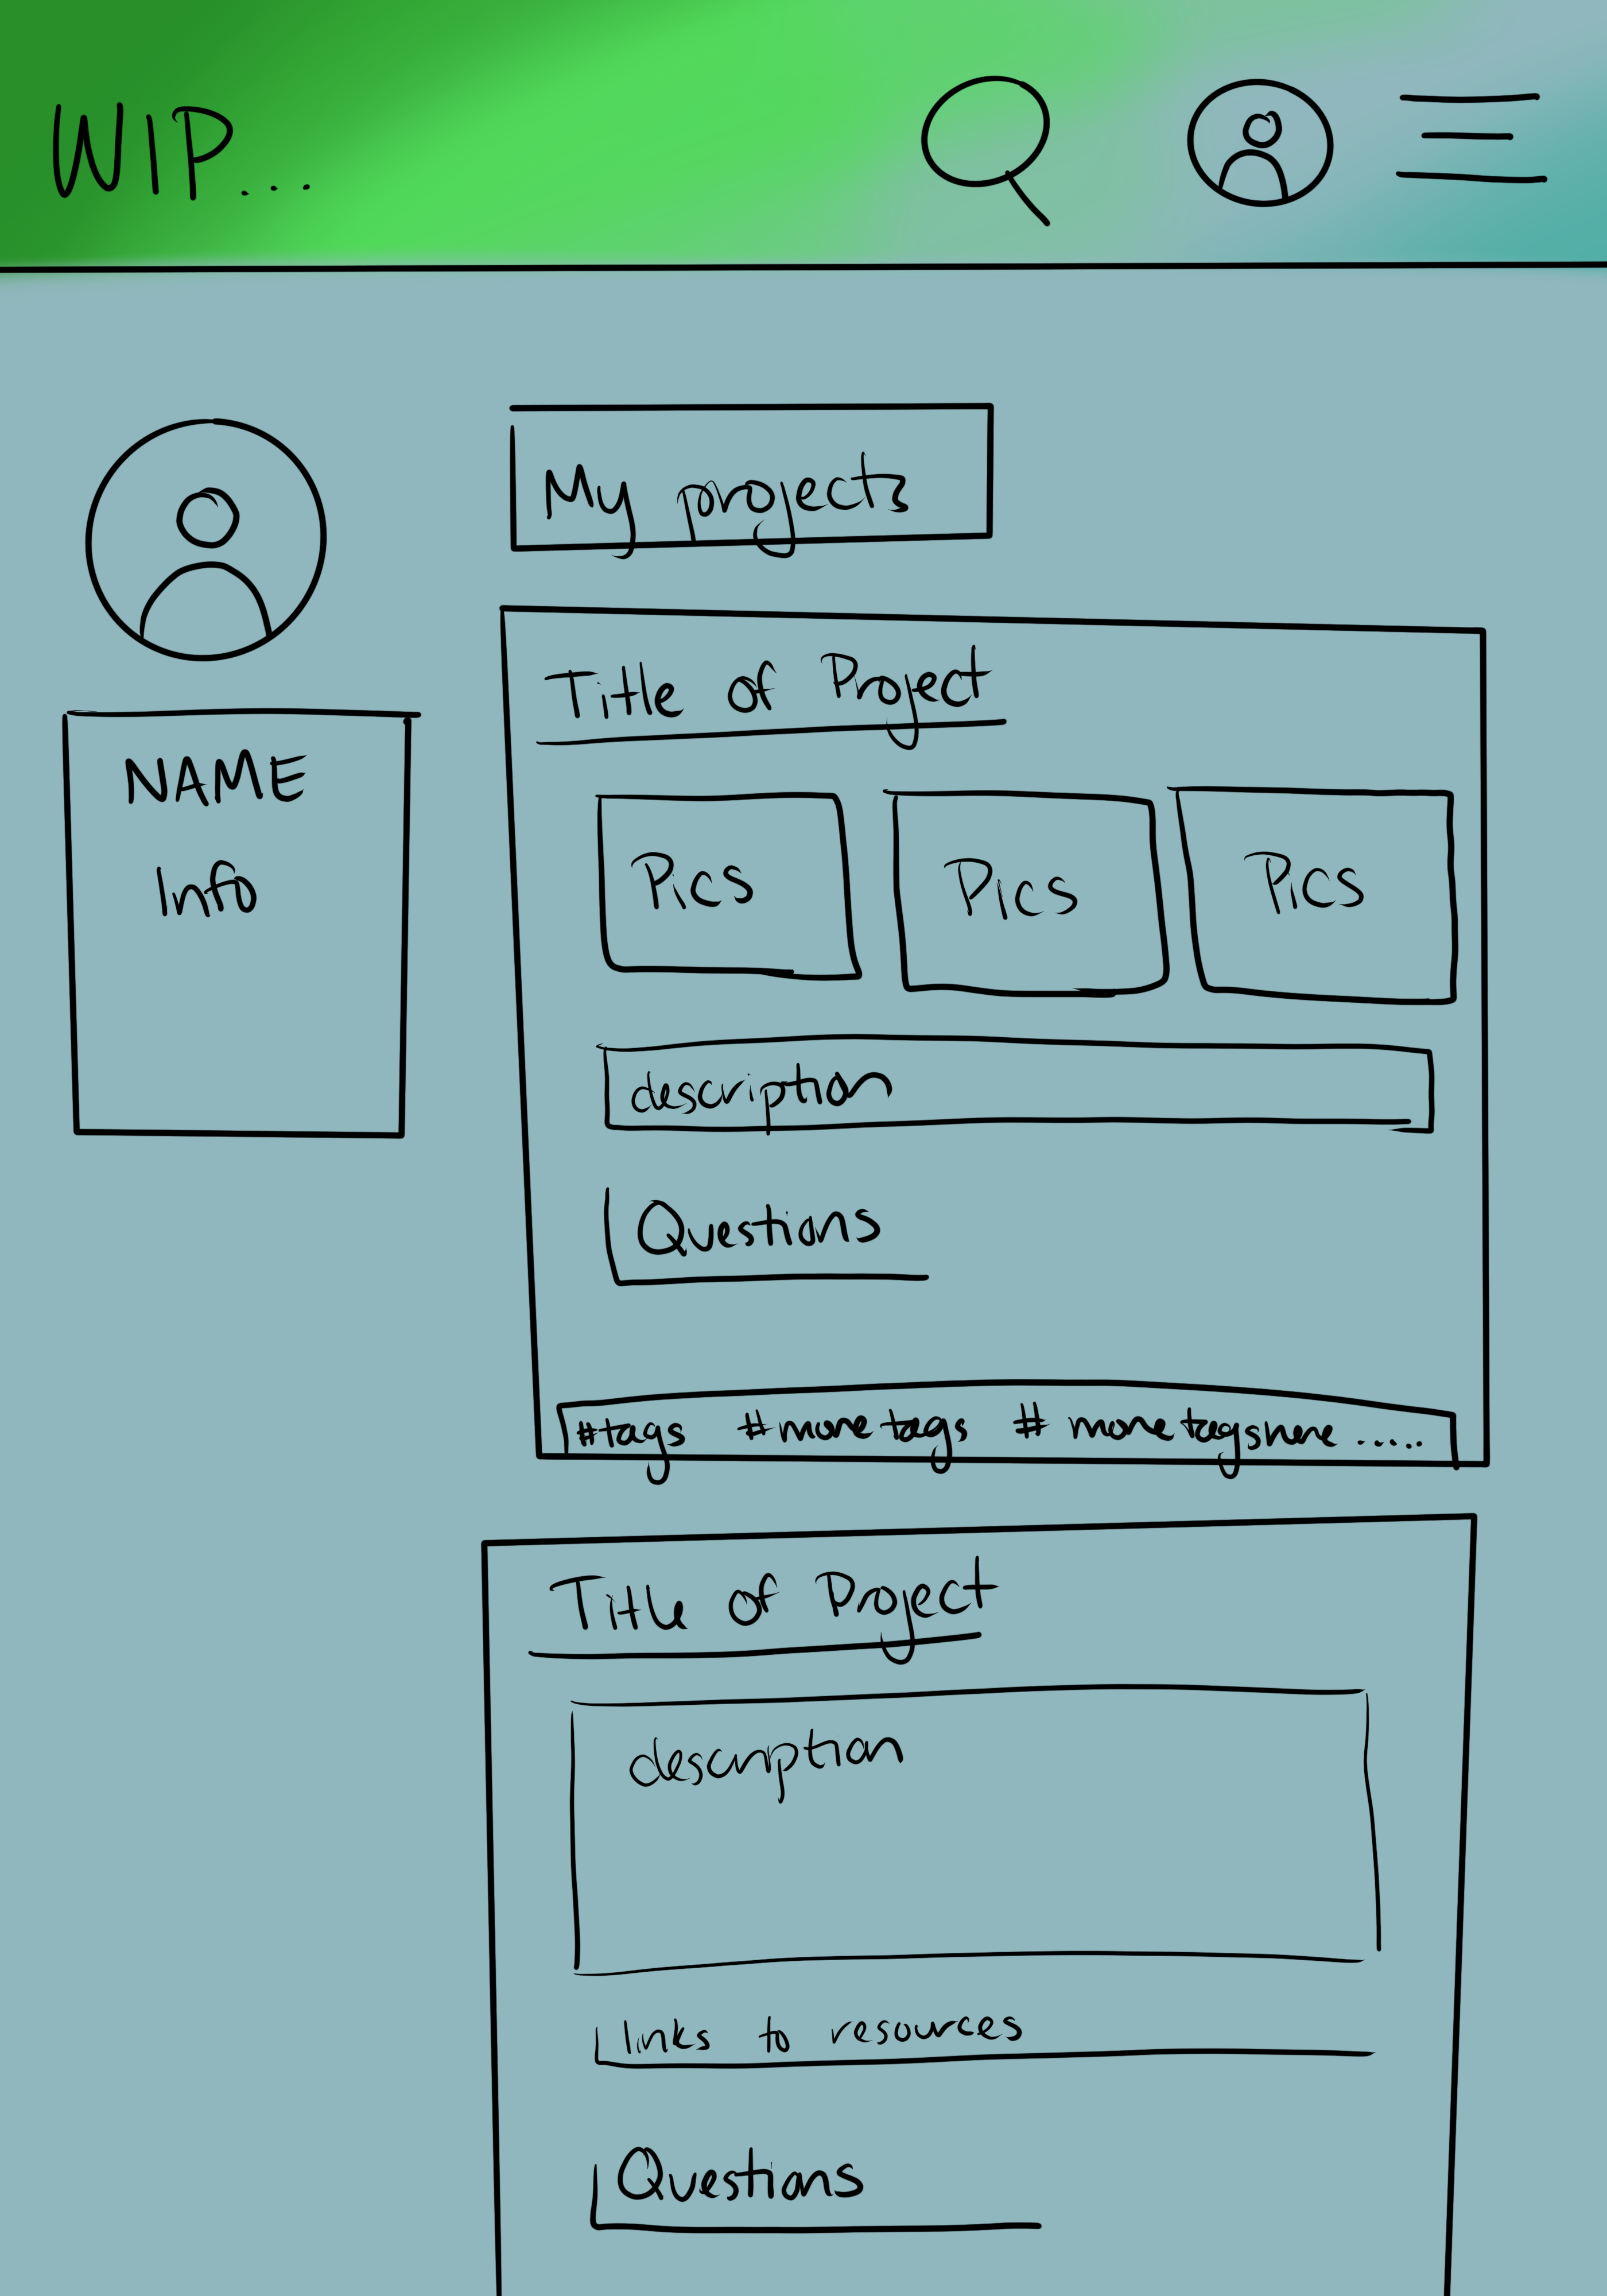 WIP...
My projects
NAME
Info
Title of Project
Pics Pics Pics
description
Questions
#tags #more tags # more tags here .....
Title of Project
description
links to resources
Questions